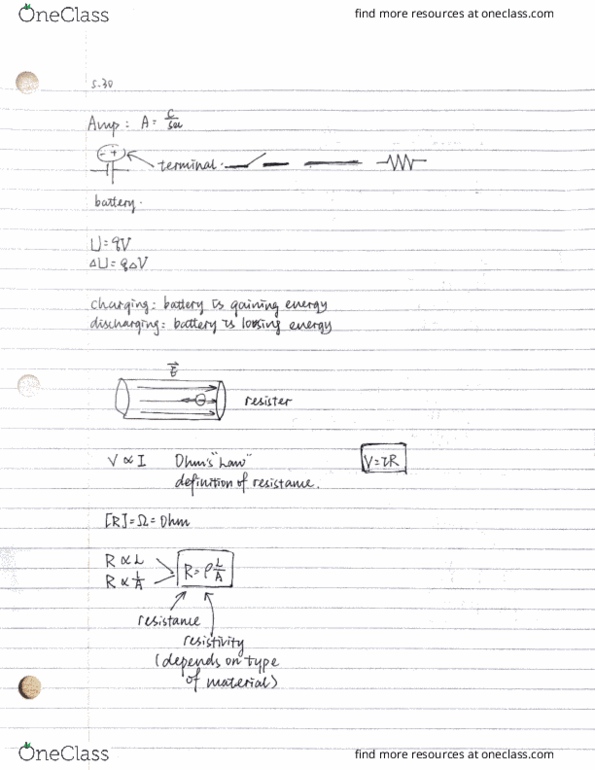 OneClass
find more resources at oneclass.com
5.30
Amp: A = C/sec
- +
terminal.
battery.
U = qV
ΔU = qΔV
charging: battery is gaining energy
discharging: battery is loosing energy
E
resister
V ∝ I Ohm's "Law" V = IR
definition of resistance.
[R] = Ω = Ohm
R ∝ L
R ∝ 1/A R = ρ L/A
resistance
resistivity
(depends on type
of material)
OneClass
find more resources at oneclass.com